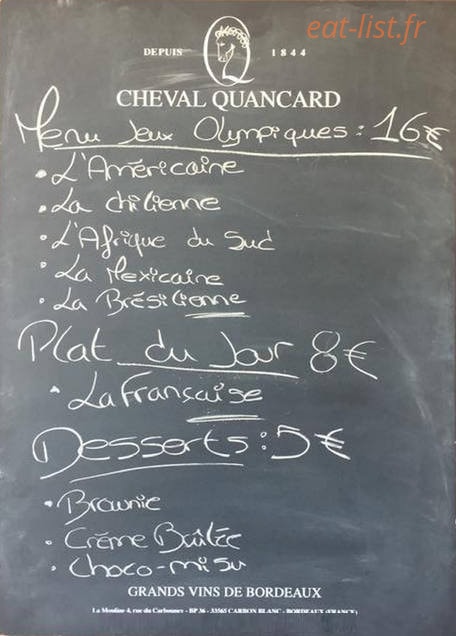 eat-list.fr
DEPUIS 1844
CHEVAL QUANCARD
Menu Jeux Olympiques : 16€
• L'Américaine
• La chilienne
• L'Afrique du Sud
• La Mexicaine
• La Brésilienne
Plat du Jour 8€
• La Française
Desserts : 5€
• Brownie
• Crème Bûlée
• Choco-misu
GRANDS VINS DE BORDEAUX
La Mouline 4, rue du Carbouney - BP 36 - 33565 CARBON BLANC - BORDEAUX (FRANCE)